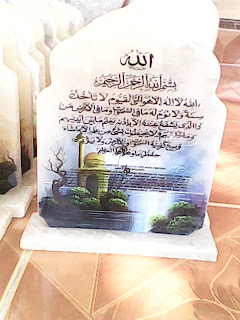 الله
بسم الله الرحمن الرحيم
الله لا اله الا هو الحي القيوم لا تاخذه
سنة ولا نوم له ما في السموات وما في الارض من
ذا الذي يشفع عنده الا باذنه يعلم ما بين ايديهم
وما خلفهم ولا يحيطون بشيء من علمه الا بما شاء
وسع كرسيه السموات والارض ولا يؤده
حفظهما وهو العلي العظيم